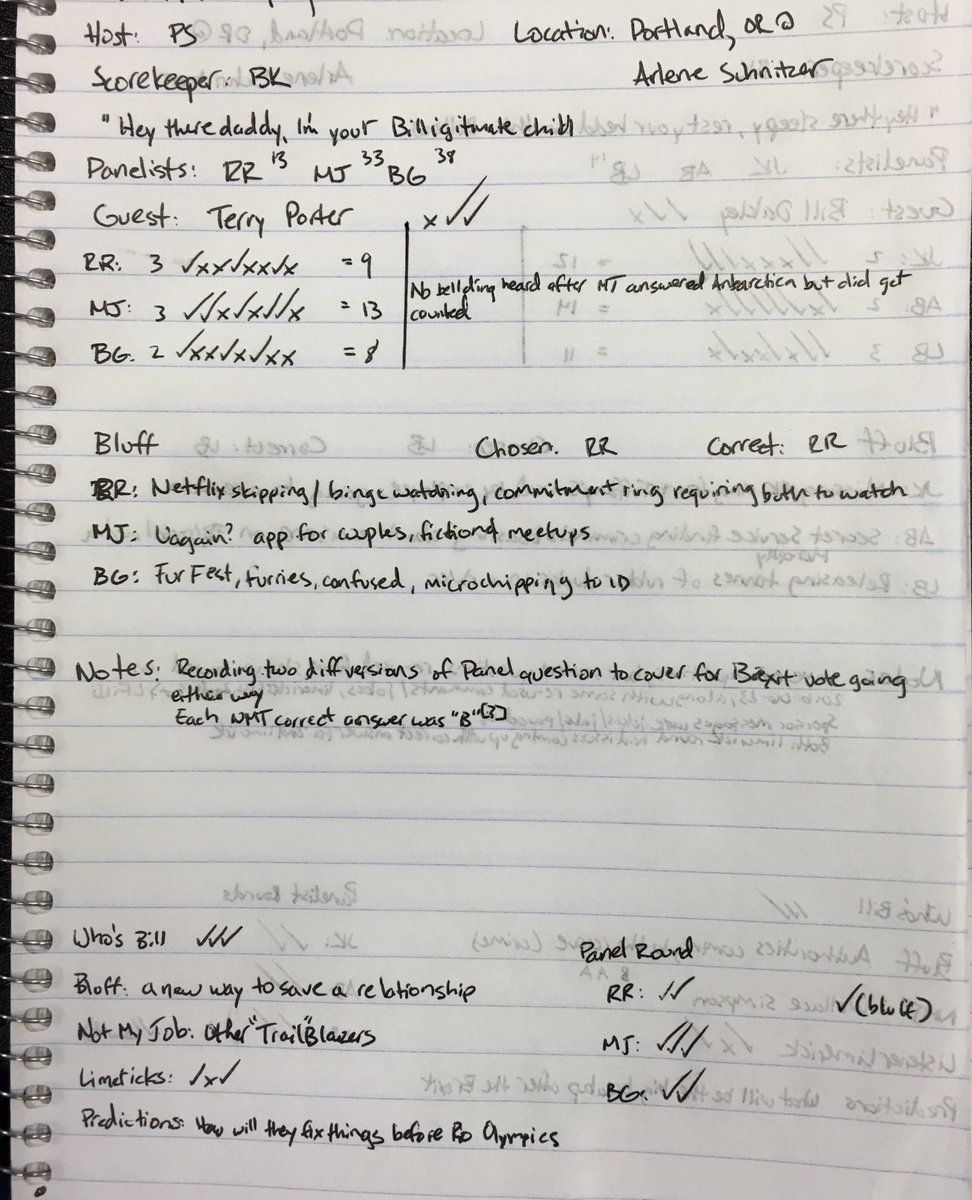 Host: PS Location: Portland, OR @
Scorekeeper: BK Arlene Schnitzer
"Hey there daddy, I'm your Billigitmate child
Panelists: RR 13 MJ 33 BG 38
Guest: Terry Porter x✓✓
RR: 3 ✓xx✓xx✓x = 9
MJ: 3 ✓✓x✓x✓✓x = 13
BG: 2 ✓xx✓x✓xx = 8
No bell ding heard after MJ answered Antarctica but did get
counted
Bluff Chosen: RR Correct: RR
RR: Netflix skipping/binge watching, commitment ring requiring both to watch
MJ: U again? app for couples, fictional meetups
BG: FurFest, furries, confused, microchipping to ID
Notes: Recording two diff versions of Panel question to cover for Brexit vote going
either way
Each NMT correct answer was "B" [3]
Who's Bill ✓✓✓
Panel Round
Bluff: a new way to save a relationship RR: ✓✓ ✓(bluff)
Not My Job: Other "Trail"Blazers MJ: ✓✓✓
Limericks: ✓x✓ BG: ✓✓
Predictions: How will they fix things before Rio Olympics